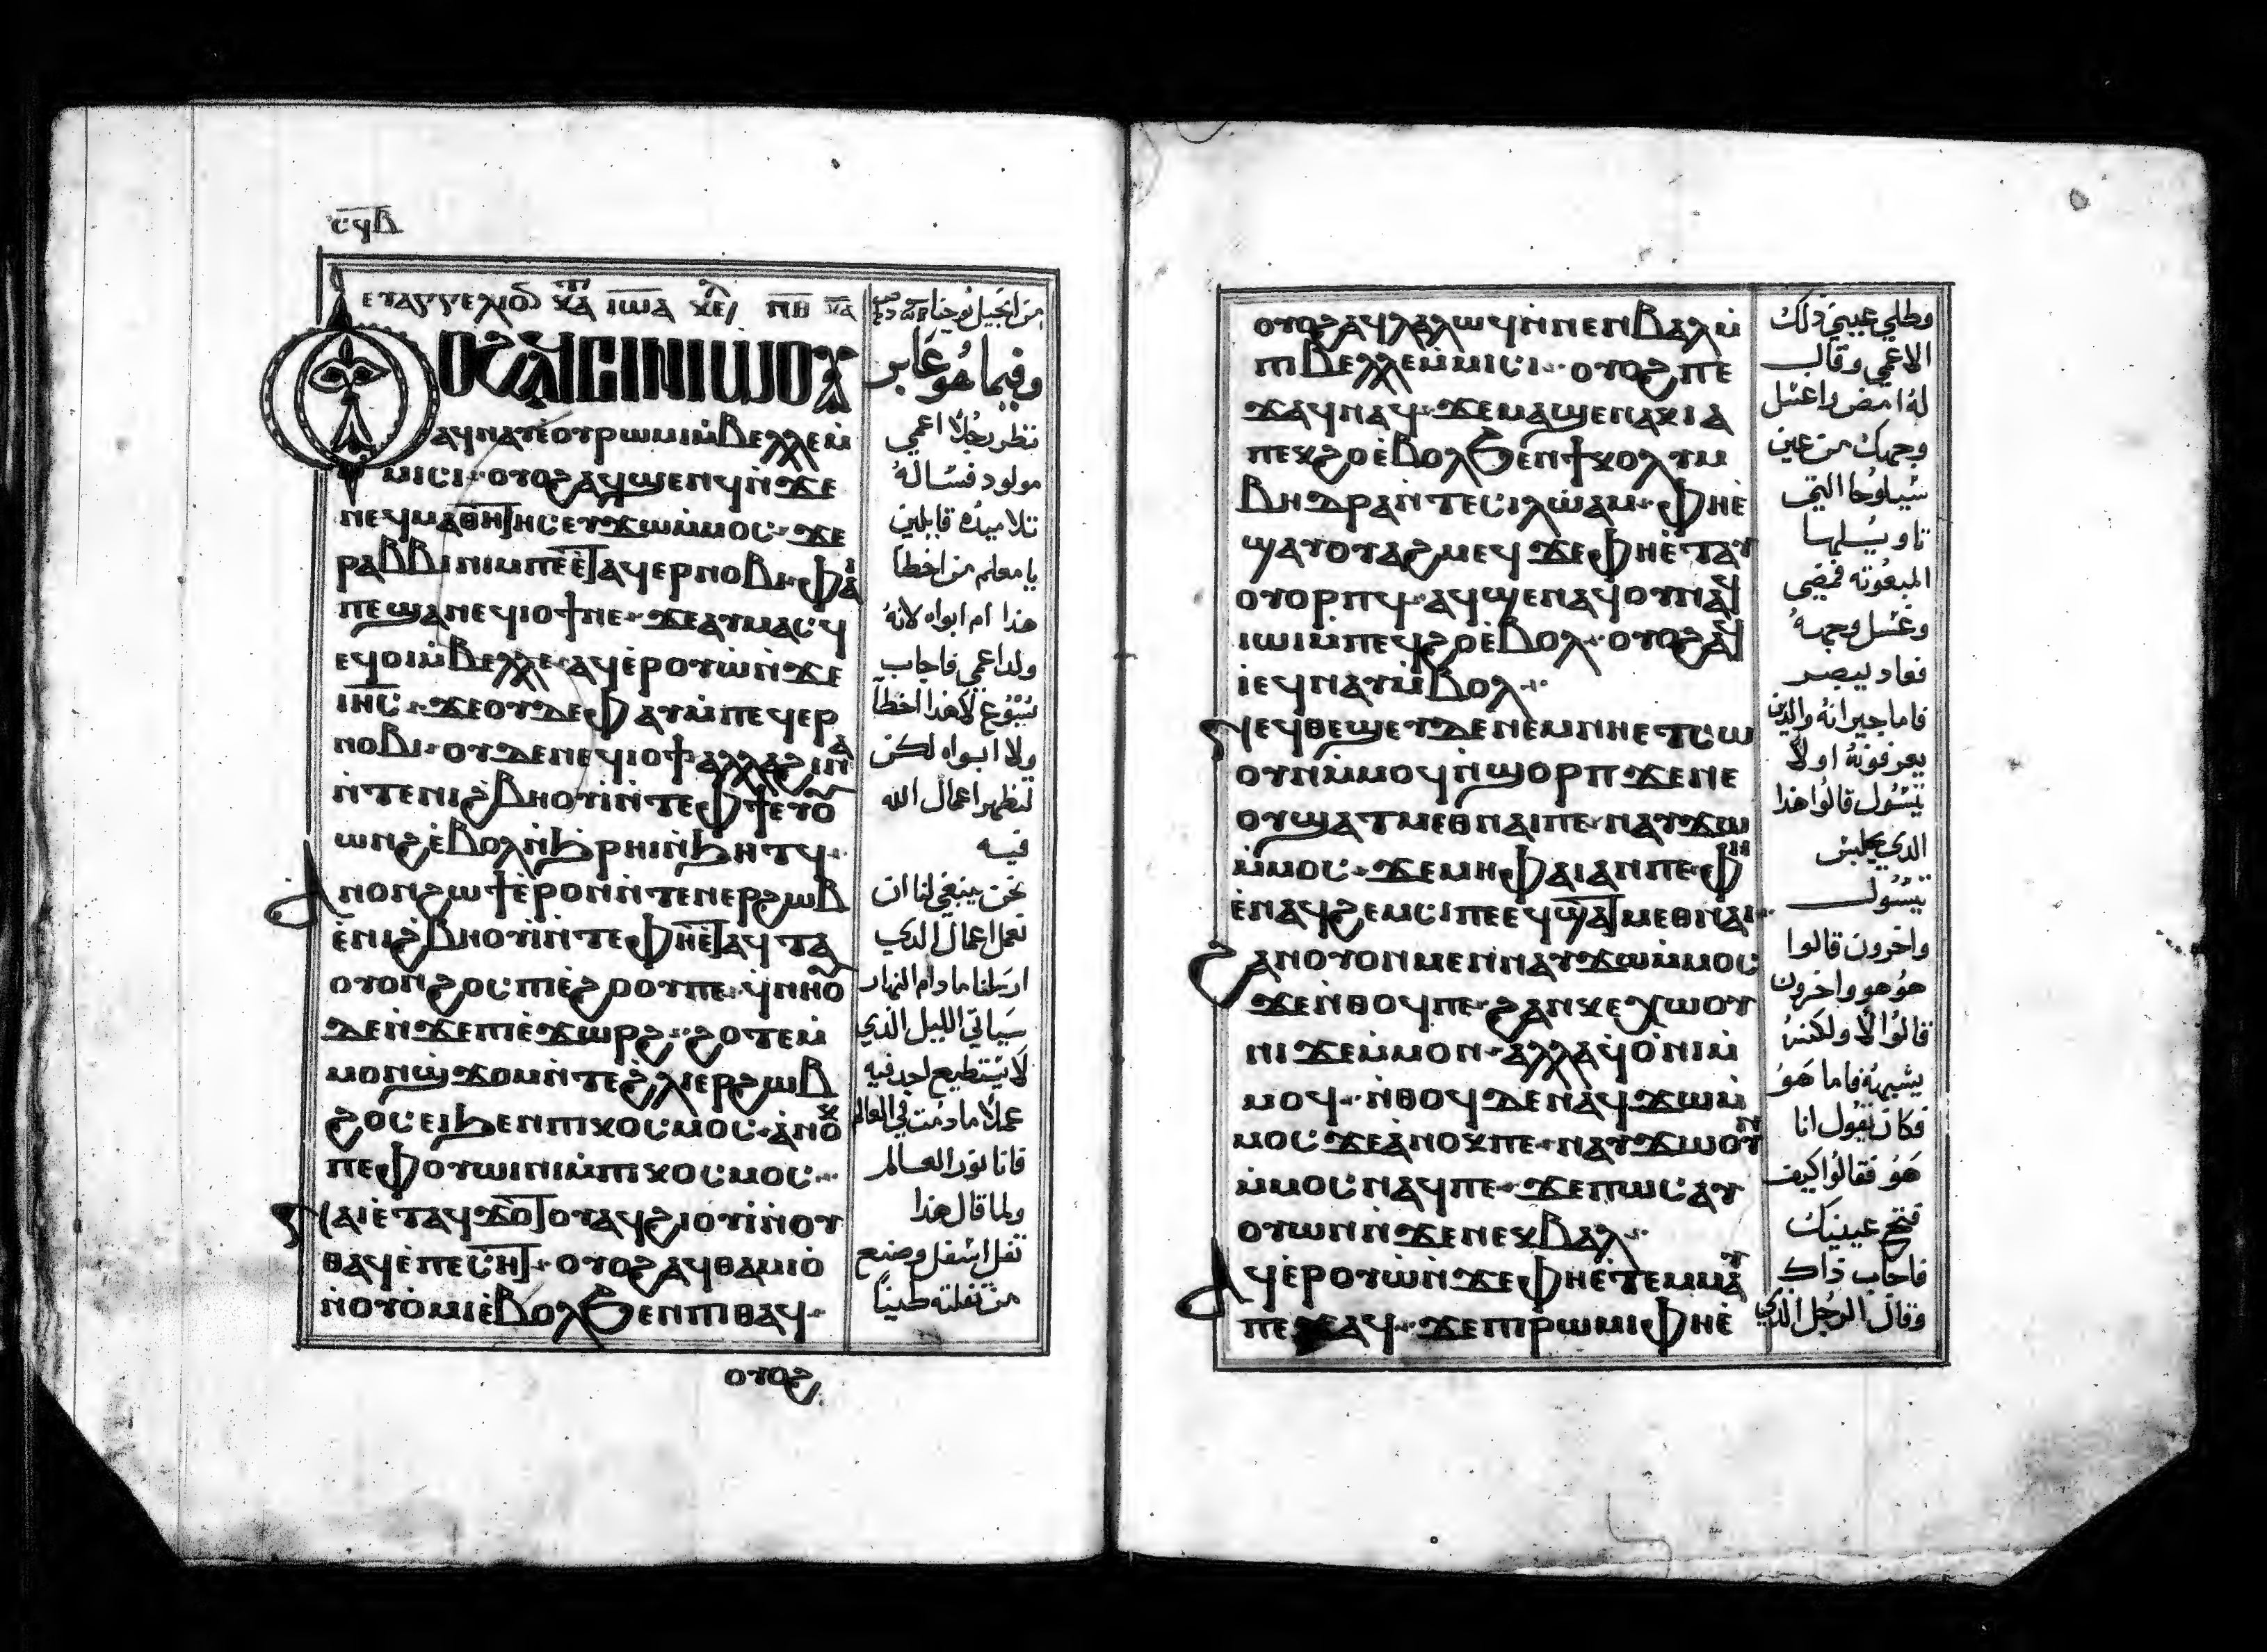 ⲥϥⲃ
ⲉⲩⲁⲅⲅⲉⲗⲓⲟ ⲕⲁⲧⲁ ⲓⲱⲁ ⲕⲉ ⲡⲑ ⲕⲁ
ⲟⲩⲟϩ ⲉϥⲥⲓⲛⲓⲱⲟⲩ
ⲁϥⲛⲁⲩⲉ̀ⲟⲩⲣⲱⲙⲓⲙ̀ⲃⲉⲗⲗⲉⲙ̀
ⲙⲓⲥⲓ· ⲟⲩⲟϩⲁϥϣⲉⲛϥⲛ̀ϫⲉ
ⲛⲉϥⲙⲁⲑⲏⲧⲏⲥⲉⲩϫⲱⲙ̀ⲙⲟⲥ· ϫⲉ
ⲣⲁⲃⲃⲓⲛⲓⲙⲡⲉⲉ̀ⲧⲁϥⲉⲣⲛⲟⲃⲓ· ⲫⲁⲓ
ⲡⲉϣⲁⲛⲉϥⲓⲟϯⲛⲉ· ϫⲉⲁⲩⲙⲁⲥϥ
ⲉϥⲟⲓⲙ̀ⲃⲉⲗⲗⲉ· ⲁϥⲉ̀ⲣⲟⲩⲱ̀ⲛ̀ϫⲉ
ⲓⲏⲥ· ϫⲉⲟⲩⲇⲉⲫⲁⲩⲙ̀ⲡⲉϥⲉⲣ
ⲛⲟⲃⲓ· ⲟⲩⲇⲉⲛⲉϥⲓⲟϯ· ⲁⲗⲗⲁϩⲓⲛⲁ
ⲛ̀ⲧⲉⲛⲓϩⲃⲏⲟⲩⲓ̀ⲛ̀ⲧⲉⲫϯⲉⲩⲟ
ⲱⲛϩⲉ̀ⲃⲟⲗⲛ̀ϧⲣⲏⲓⲛ̀ϧⲏⲧϥ·
ⲁⲛⲟⲛϩⲱϯⲉ̀ⲣⲟⲛⲛ̀ⲧⲉⲛⲉⲣϩⲱⲃ
ⲉ̀ⲛⲓϩⲃⲏⲟⲩⲓ̀ⲛ̀ⲧⲉⲫⲏⲉ̀ⲧⲁϥⲧⲁ
ⲟⲩⲟⲛϩⲟⲥⲡⲓⲉ̀ϩⲟⲟⲩⲡⲉ· ϥ̀ⲛⲏⲟⲩ
ⲇⲉⲛ̀ϫⲉⲡⲓⲉ̀ϫⲱⲣϩ· ϩⲟⲧⲉⲙ̀
ⲙⲟⲛϣ̀ϫⲟⲙⲛ̀ⲧⲉϩ̀ⲗⲓⲉⲣϩⲱⲃ
ϩⲟⲥⲉⲓϧⲉⲛⲡⲓⲕⲟⲥⲙⲟⲥ· ⲁ̀ⲛⲟⲕ
ⲡⲉⲫⲟⲩⲱⲓⲛⲓⲙ̀ⲡⲓⲕⲟⲥⲙⲟⲥ·
ⲫⲁⲓⲉ̀ⲧⲁϥϫⲟ̀ⲧⲟⲩⲁϥϩⲓⲟⲩⲓ̀ⲛ̀ⲟⲩ
ⲑⲁϥⲉ̀ⲡⲉⲥⲏⲧ· ⲟⲩⲟϩⲁϥⲑⲁⲙⲓⲟ̀
ⲛ̀ⲟⲩⲟ̀ⲙⲓⲉ̀ⲃⲟⲗϧⲉⲛⲡⲓⲑⲁϥ·
ⲟⲩⲟϩ
من انجيل يوحنا
وفيما هو عابر
نظر رجلاً اعمي
مولود فساله
تلاميده قايلين
يا معلم من اخطا
هذا ام ابواه لانه
ولد اعمي فاجاب
يسوع لا هذا اخطا
ولا ابواه لكن
لتظهر اعمال الله
فيه
نحن ينبغي لنا ان
نعمل اعمال الدي
ارسلنا ما دام النهار
سياتي الليل الذي
لا يستطيع احد فيه
عملاً ما دمت في العالم
فانا نور العالم
ولما قال هذا
تفل اسفل وصنع
من تفلته طيناً
ⲟⲩⲟϩⲁϥⲗⲁⲗⲱϥⲛ̀ⲛⲉⲛⲃⲁⲗⲙ̀
ⲡⲓⲃⲉⲗⲗⲉⲙ̀ⲙⲓⲥⲓ· ⲟⲩⲟϩⲡⲉ
ϫⲁϥⲛⲁϥ· ϫⲉⲙⲁϣⲉⲛⲁⲕⲓⲁ
ⲡⲉⲕϩⲟⲉ̀ⲃⲟⲗϧⲉⲛϯⲕⲟⲗⲩⲙ
ⲃⲏⲑⲣⲁⲛ̀ⲧⲉⲥⲓⲗⲱ̀ⲁⲙ· ⲫⲏⲉ̀
ϣⲁⲩⲟⲩⲁϩⲙⲉϥ ϫⲉⲫⲏⲉ̀ⲧⲁⲩ
ⲟⲩⲟⲣⲡϥ· ⲁϥϣⲉⲛⲁϥⲟⲩⲛⲁϥ
ⲓⲱⲓⲙ̀ⲡⲉϥϩⲟⲉ̀ⲃⲟⲗ· ⲟⲩⲟϩⲁϥ
ⲓ̀ⲉϥⲛⲁⲩⲙ̀ⲃⲟⲗ·
ⲛⲉϥⲑⲉϣⲉⲩⲇⲉⲛⲉⲙⲛⲏⲉⲧⲥⲱ
ⲟⲩⲛⲙ̀ⲙⲟϥⲛ̀ϣⲟⲣⲡ ϫⲉⲛⲉ
ⲟⲩϣⲁⲧⲙⲉⲑⲛⲁⲓⲡⲉ· ⲛⲁⲩϫⲱ
ⲙ̀ⲙⲟⲥ· ϫⲉⲙⲏⲫⲁⲓⲁⲛⲡⲉ· ⲫⲏ
ⲉ̀ⲛⲁϥϩⲉⲙⲥⲓⲡⲉⲉϥϣⲁⲧⲙⲉⲑⲛⲁⲓ·
ϩⲁⲛⲟⲩⲟⲛⲙⲉⲛⲛⲁⲩϫⲱⲙ̀ⲙⲟⲥ
ϫⲉⲛ̀ⲑⲟϥⲡⲉ· ϩⲁⲛⲕⲉⲭⲱⲟⲩ
ⲛⲓ ϫⲉⲙ̀ⲙⲟⲛ· ⲁⲗⲗⲁϥⲟ̀ⲛⲓⲙ̀
ⲙⲟϥ· ⲛ̀ⲑⲟϥⲇⲉⲛⲁϥϫⲱⲙ̀
ⲙⲟⲥ ϫⲉⲁ̀ⲛⲟⲕⲡⲉ· ⲛⲁⲩϫⲱⲟⲩⲛ
ⲙ̀ⲙⲟⲥⲛⲁϥⲡⲉ· ϫⲉⲡⲱⲥⲁⲩ
ⲟⲩⲱⲛⲛ̀ϫⲉⲛⲉⲕⲃⲁⲗ·
ⲁϥⲉ̀ⲣⲟⲩⲱ̀ⲛ̀ϫⲉⲫⲏⲉ̀ⲧⲉⲙⲙⲁⲩ
ⲡⲉϫⲁϥ· ϫⲉⲡⲓⲣⲱⲙⲓⲫⲏⲉ̀
وطلي عيني دلك
الاعمي وقال
له امض واغسل
وجهك من عين
شيلوحا التي
تاويلها
المبعوته فمضي
وغسل وجهه
فعاد يبصر
فاما جيرانه والدين
يعرفونه اولاً
يتسول قالوا هذا
الدي يجلس
يتسول
واخرون قالوا
هو هو واخرون
قالوا لا ولكنه
يشبهه فاما هو
فكان يقول انا
هو فقالوا كيف
فتح عينيك
فاجاب ذاك
وقال الرجل الدي